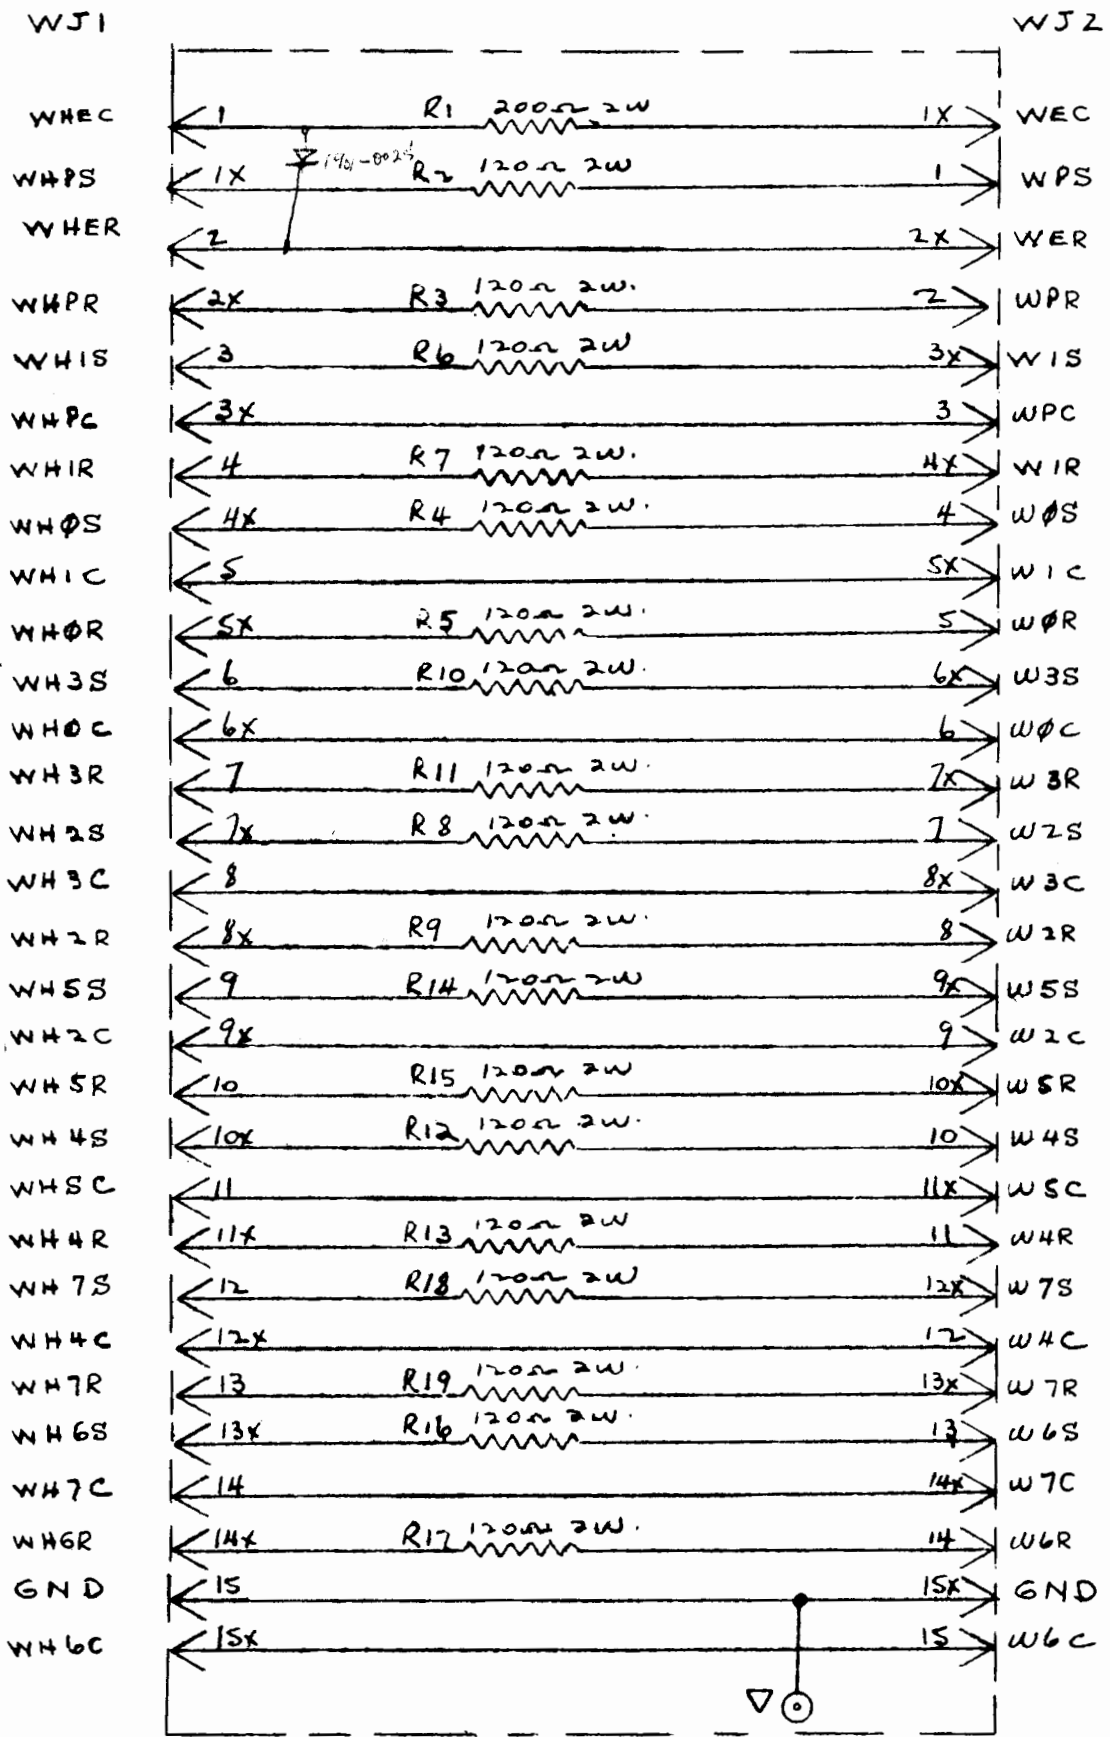 WJ1 WJ2
WHEC 1 R1 200Ω 2W 1X WEC
1901-0025
WHPS 1X R2 120Ω 2W 1 WPS
WHER 2 2X WER
WHPR 2X R3 120Ω 2W. 2 WPR
WH1S 3 R6 120Ω 2W 3X W1S
WHPC 3X 3 WPC
WH1R 4 R7 120Ω 2W. 4X W1R
WHØS 4X R4 120Ω 2W. 4 WØS
WH1C 5 5X W1C
WHØR 5X R5 120Ω 2W. 5 WØR
WH3S 6 R10 120Ω 2W. 6X W3S
WH0C 6X 6 WØC
WH3R 7 R11 120Ω 2W. 7X W3R
WH2S 7X R8 120Ω 2W. 7 W2S
WH3C 8 8X W3C
WH2R 8X R9 120Ω 2W. 8 W2R
WH5S 9 R14 120Ω 2W 9X W5S
WH2C 9X 9 W2C
WH5R 10 R15 120Ω 2W 10X W5R
WH4S 10X R12 120Ω 2W. 10 W4S
WH5C 11 11X W5C
WH4R 11X R13 120Ω 2W 11 W4R
WH7S 12 R18 120Ω 2W 12X W7S
WH4C 12X 12 W4C
WH7R 13 R19 120Ω 2W. 13X W7R
WH6S 13X R16 120Ω 2W. 13 W6S
WH7C 14 14X W7C
WH6R 14X R17 120Ω 2W. 14 W6R
GND 15 15X GND
WH6C 15X 15 W6C